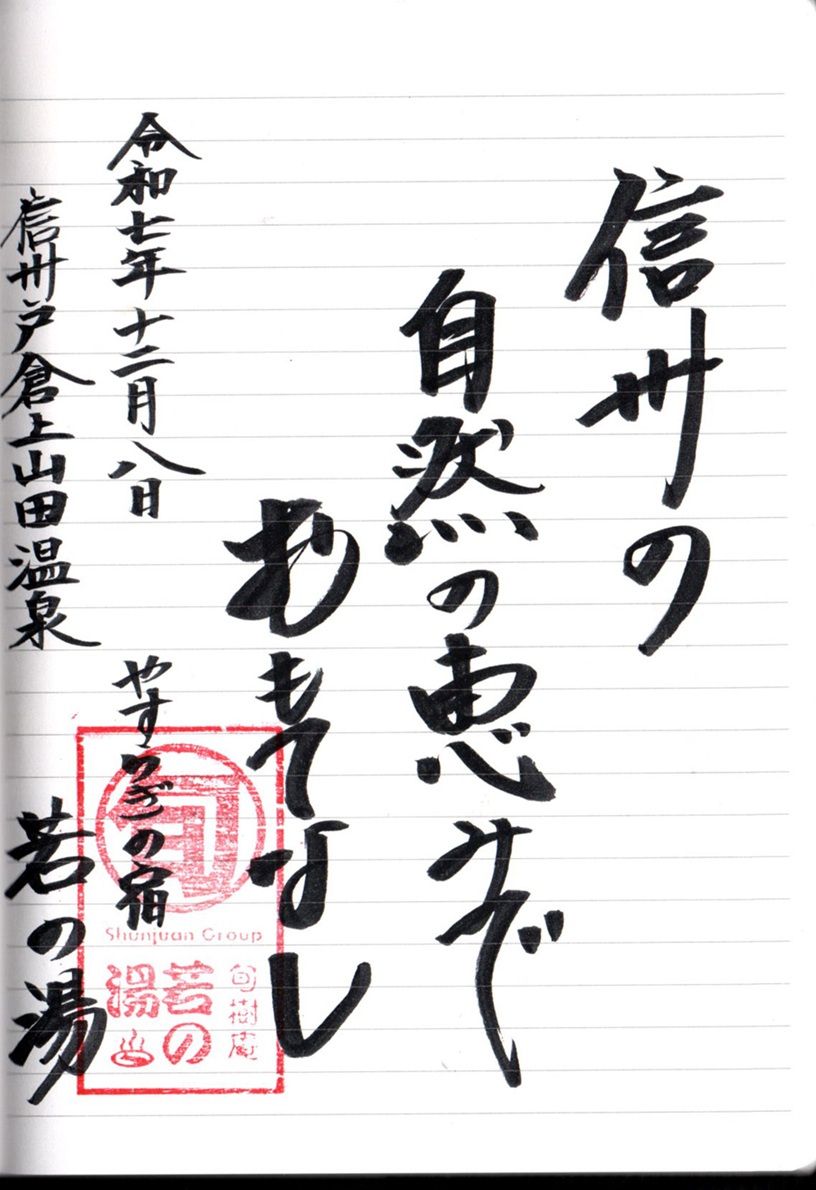 信州の
自然の恵みで
おもてなし
令和七年十二月八日
やすらぎの宿
信州戸倉上山田温泉
若の湯
旬
Shunjuan Group
旬樹庵
若の
湯